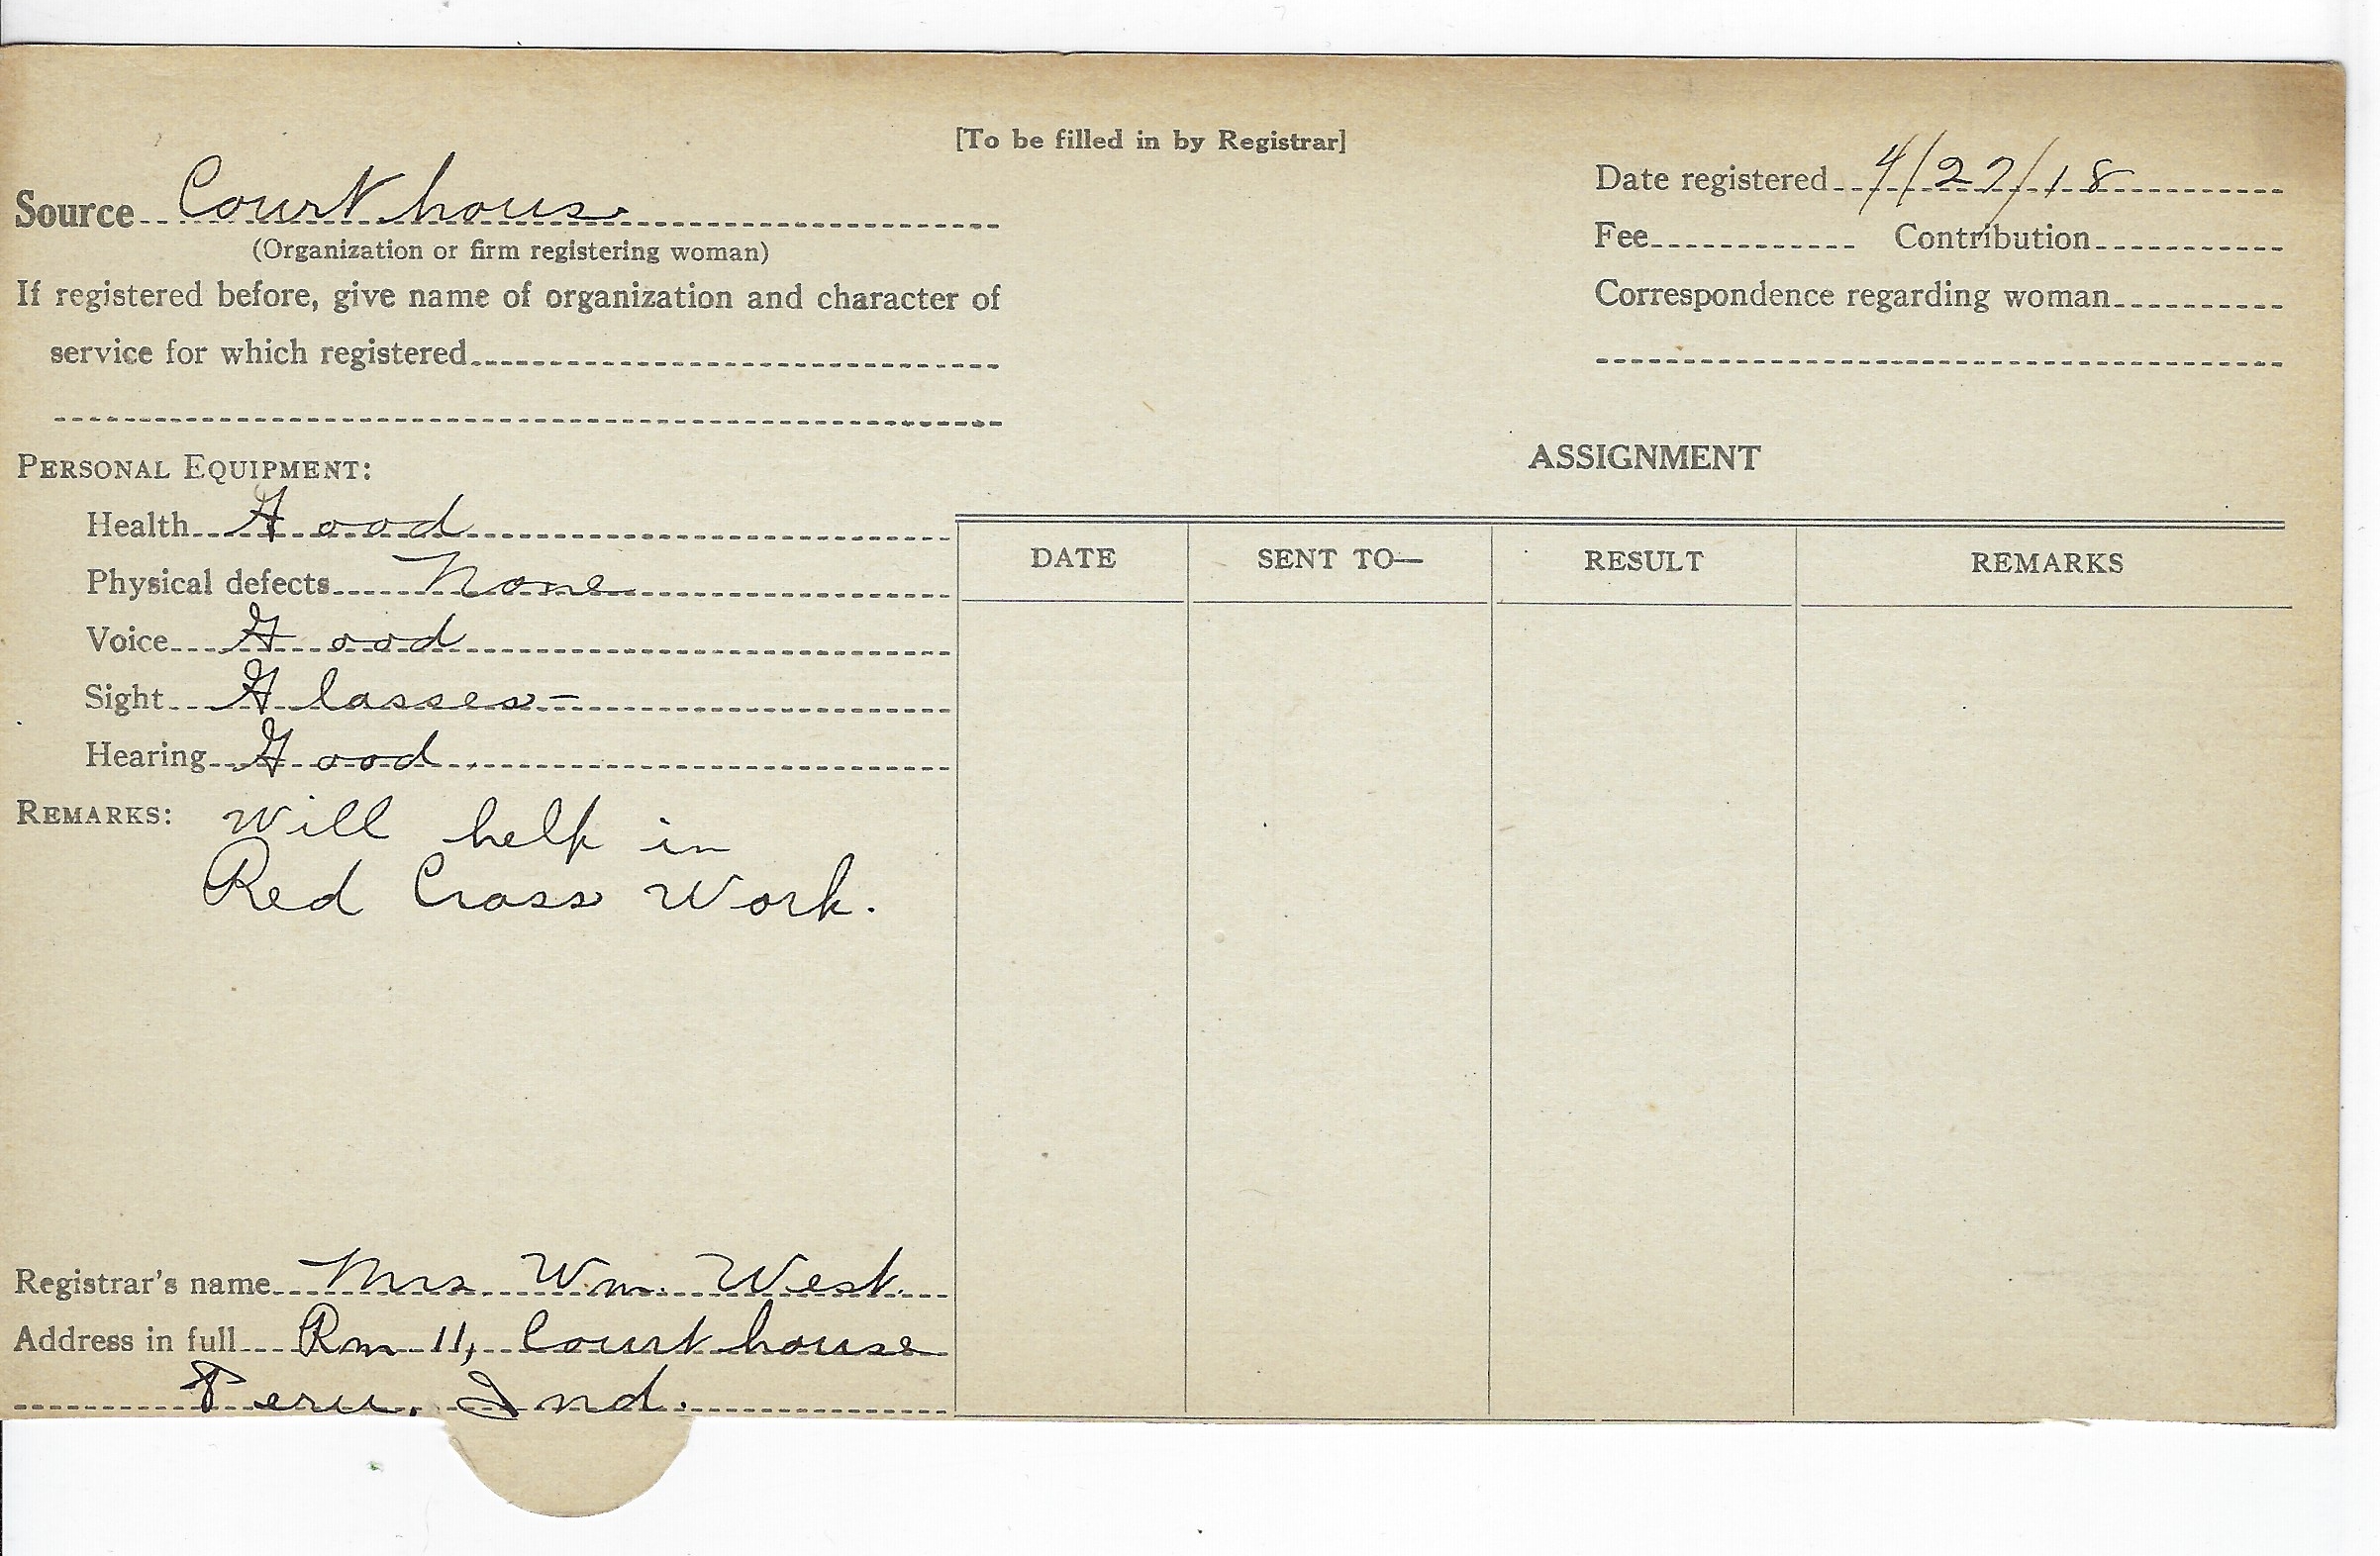 [To be filled in by Registrar]
Source Court house
(Organization or firm registering woman)
If registered before, give name of organization and character of
service for which registered
Date registered 4/27/18
Fee Contribution
Correspondence regarding woman
PERSONAL EQUIPMENT:
Health Good
Physical defects None
Voice Good
Sight Glasses-
Hearing Good
REMARKS: Will help in
Red Cross Work.
Registrar's name Mrs Wm. West.
Address in full Rm 11, Court house
Peru, Ind.
ASSIGNMENT
DATE SENT TO— RESULT REMARKS